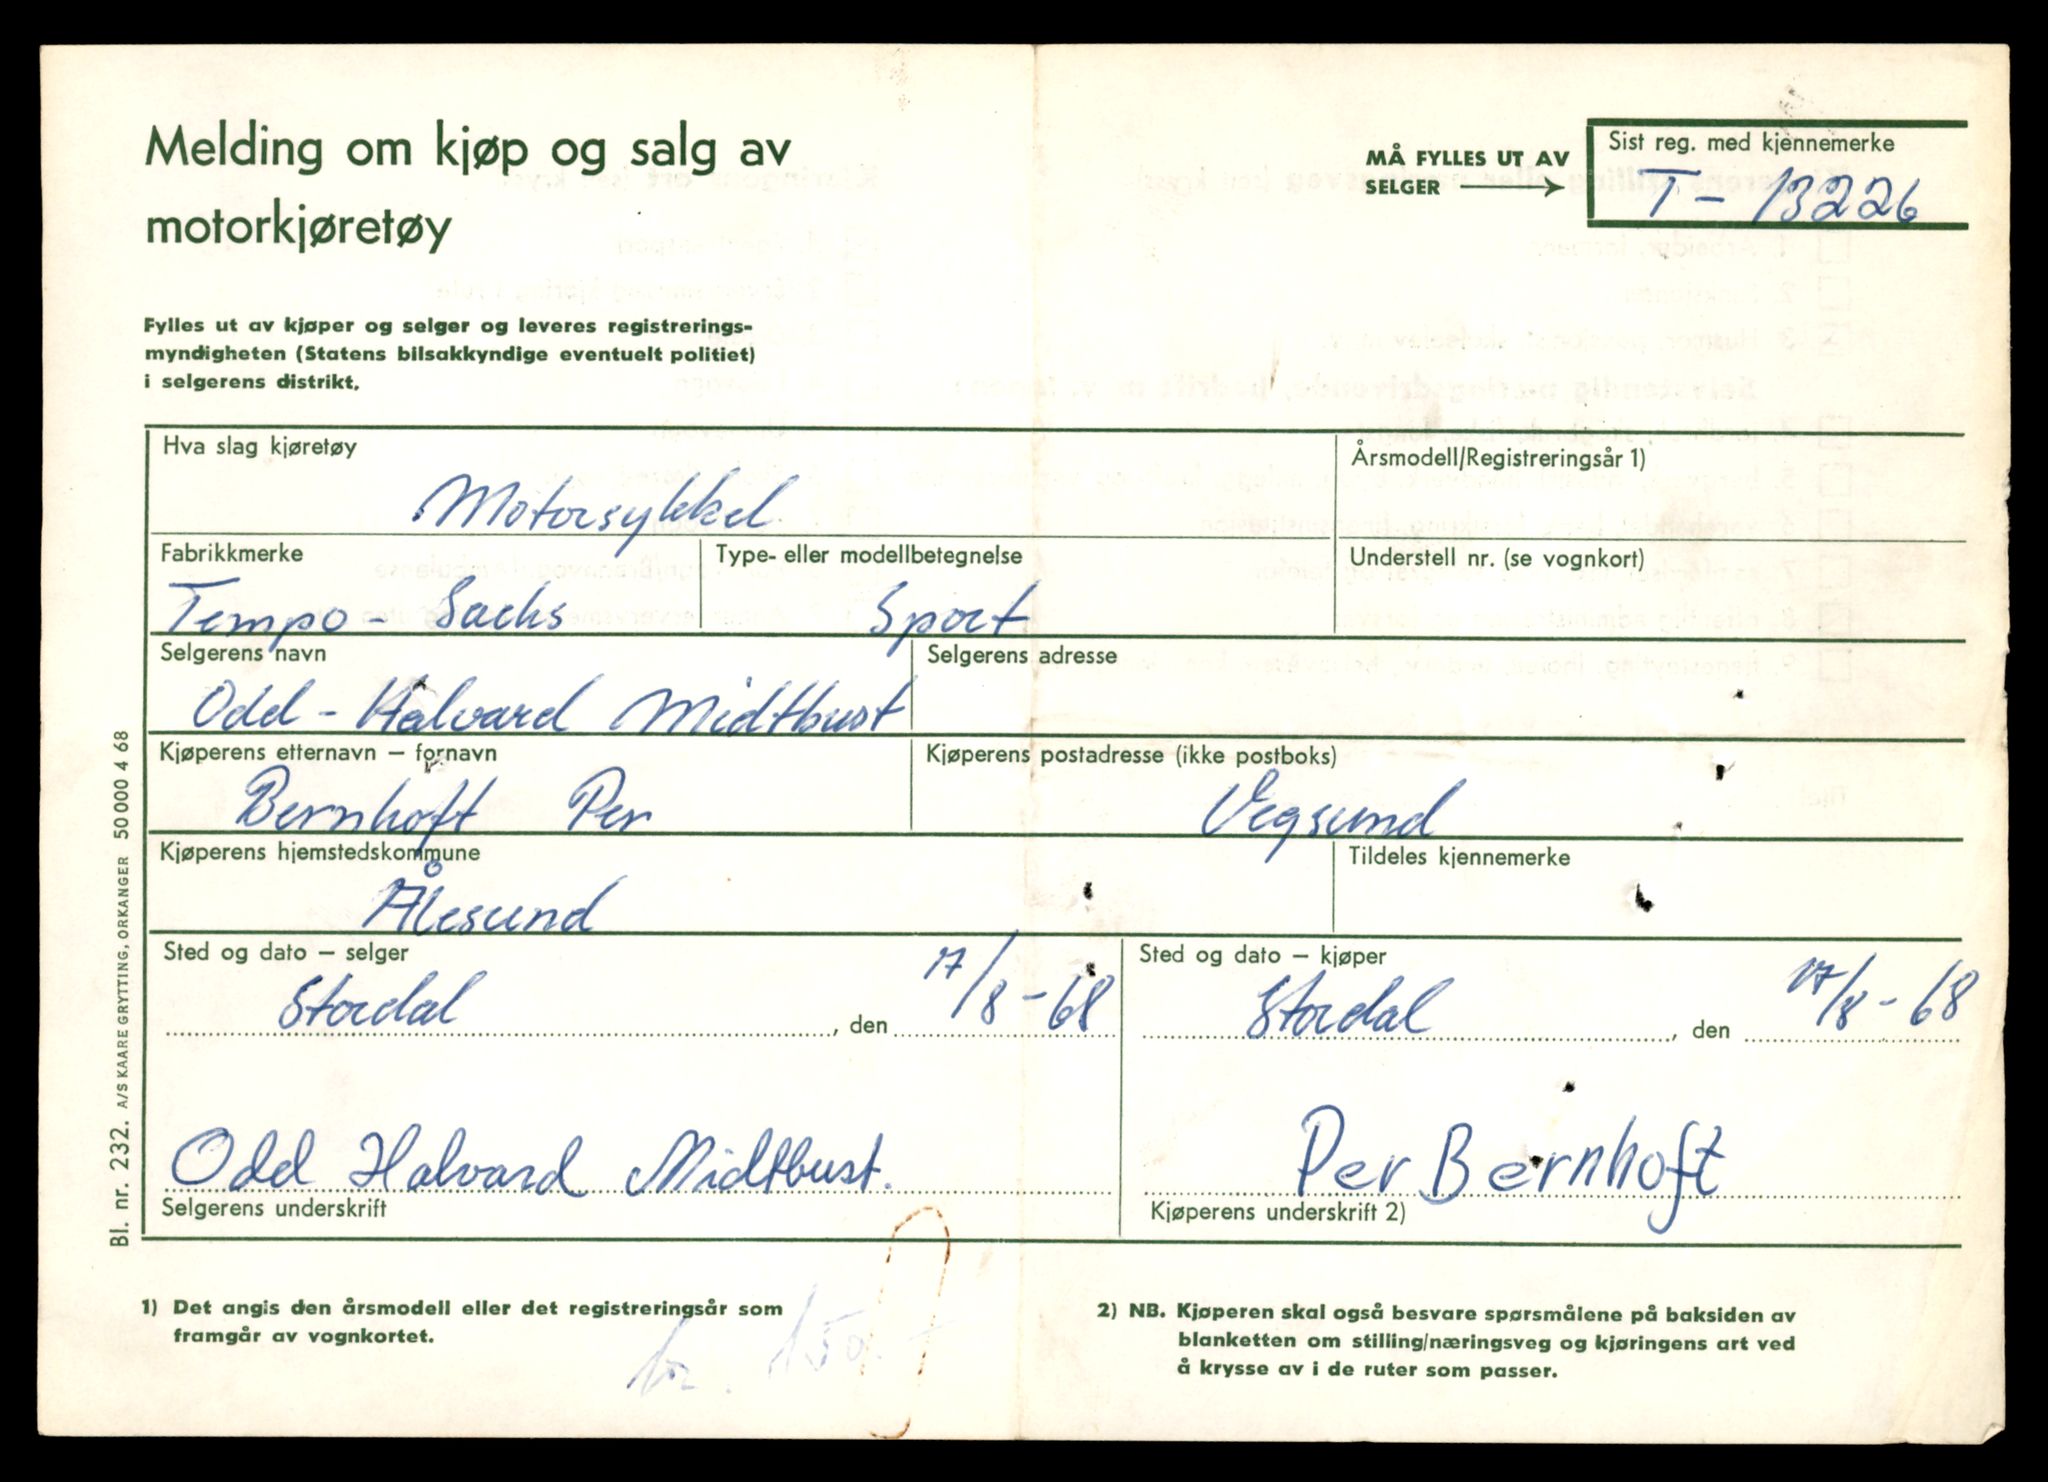 Melding om kjøp og salg av
motorkjøretøy
MÅ FYLLES UT AV
SELGER
Sist reg. med kjennemerke
T - 13226
Fylles ut av kjøper og selger og leveres registrerings-
myndigheten (Statens bilsakkyndige eventuelt politiet)
i selgerens distrikt.
Hva slag kjøretøy
Motorsykkel
Årsmodell/Registreringsår 1)
Fabrikkmerke
Tempo - Sachs
Type- eller modellbetegnelse
Sport
Understell nr. (se vognkort)
Selgerens navn
Odd - Halvard Midtbust
Selgerens adresse
Kjøperens etternavn – fornavn
Bernhoft Per
Kjøperens postadresse (ikke postboks)
Vegsund
Kjøperens hjemstedskommune
Ålesund
Tildeles kjennemerke
Sted og dato – selger
Stordal, den 17/8 - 68
Sted og dato – kjøper
Stordal, den 17/8 - 68
Odd Halvard Midtbust.
Selgerens underskrift
Per Bernhoft
Kjøperens underskrift 2)
Bl. nr. 232. A/S KAARE GRYTTING, ORKANGER 50 000 4 68
1) Det angis den årsmodell eller det registreringsår som
framgår av vognkortet.
kr. 150.-
2) NB. Kjøperen skal også besvare spørsmålene på baksiden av
blanketten om stilling/næringsveg og kjøringens art ved
å krysse av i de ruter som passer.